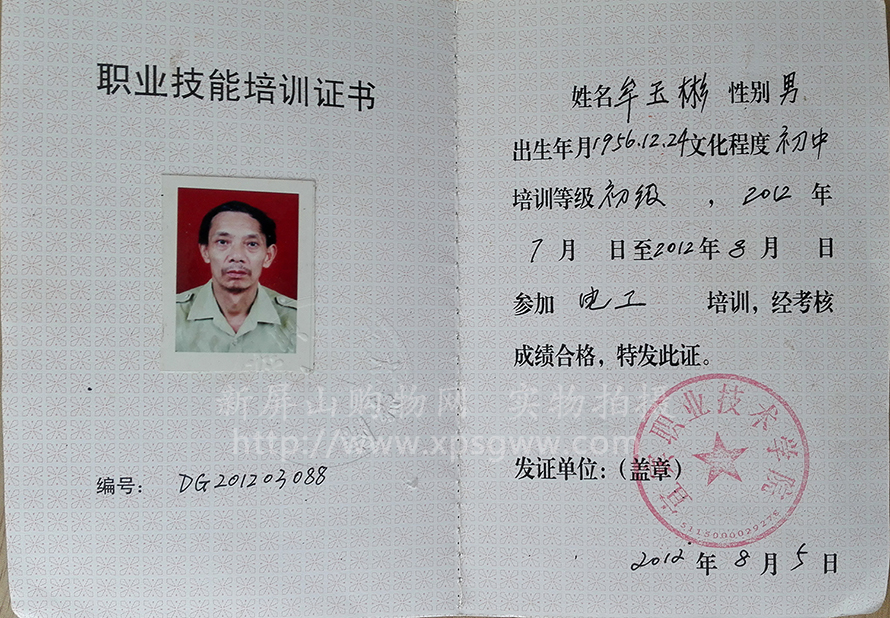 职业技能培训证书
编号： DG201203088
姓名 牟玉彬 性别 男
出生年月1956.12.24文化程度 初中
培训等级 初级 ， 2012 年
7 月 日至2012年 8 月 日
参加 电工 培训，经考核
成绩合格，特发此证。
发证单位：（盖章）
宜宾职业技术学院
2012 年 8 月 5 日
新屏山购物网 实物拍摄
http://www.xpsgww.com